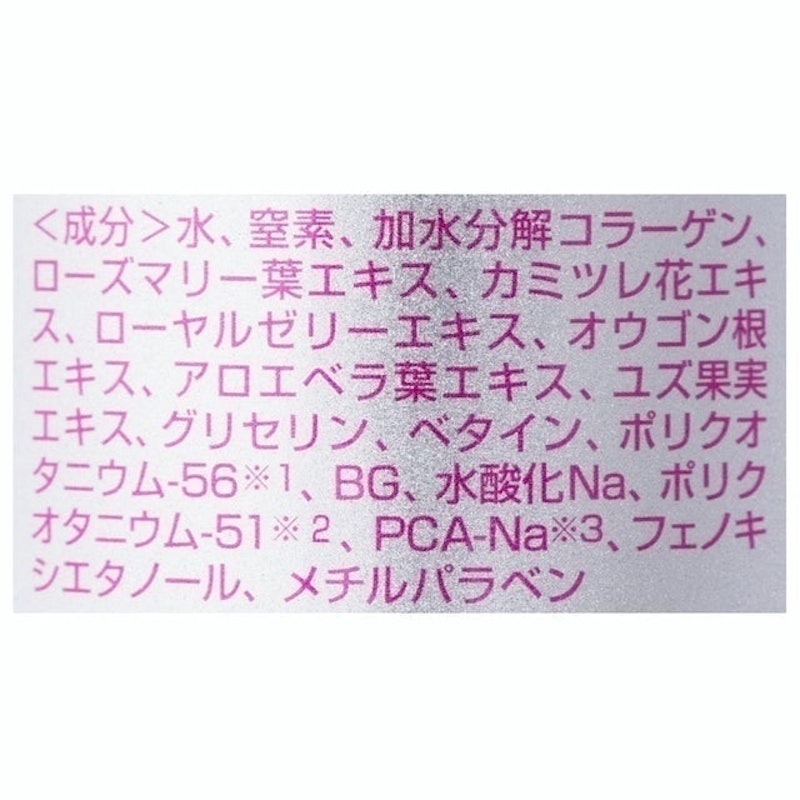 ＜成分＞水、窒素、加水分解コラーゲン、
ローズマリー葉エキス、カミツレ花エキ
ス、ローヤルゼリーエキス、オウゴン根
エキス、アロエベラ葉エキス、ユズ果実
エキス、グリセリン、ベタイン、ポリクオ
タニウム-56※1、BG、水酸化Na、ポリク
オタニウム-51※2、PCA-Na※3、フェノキ
シエタノール、メチルパラベン